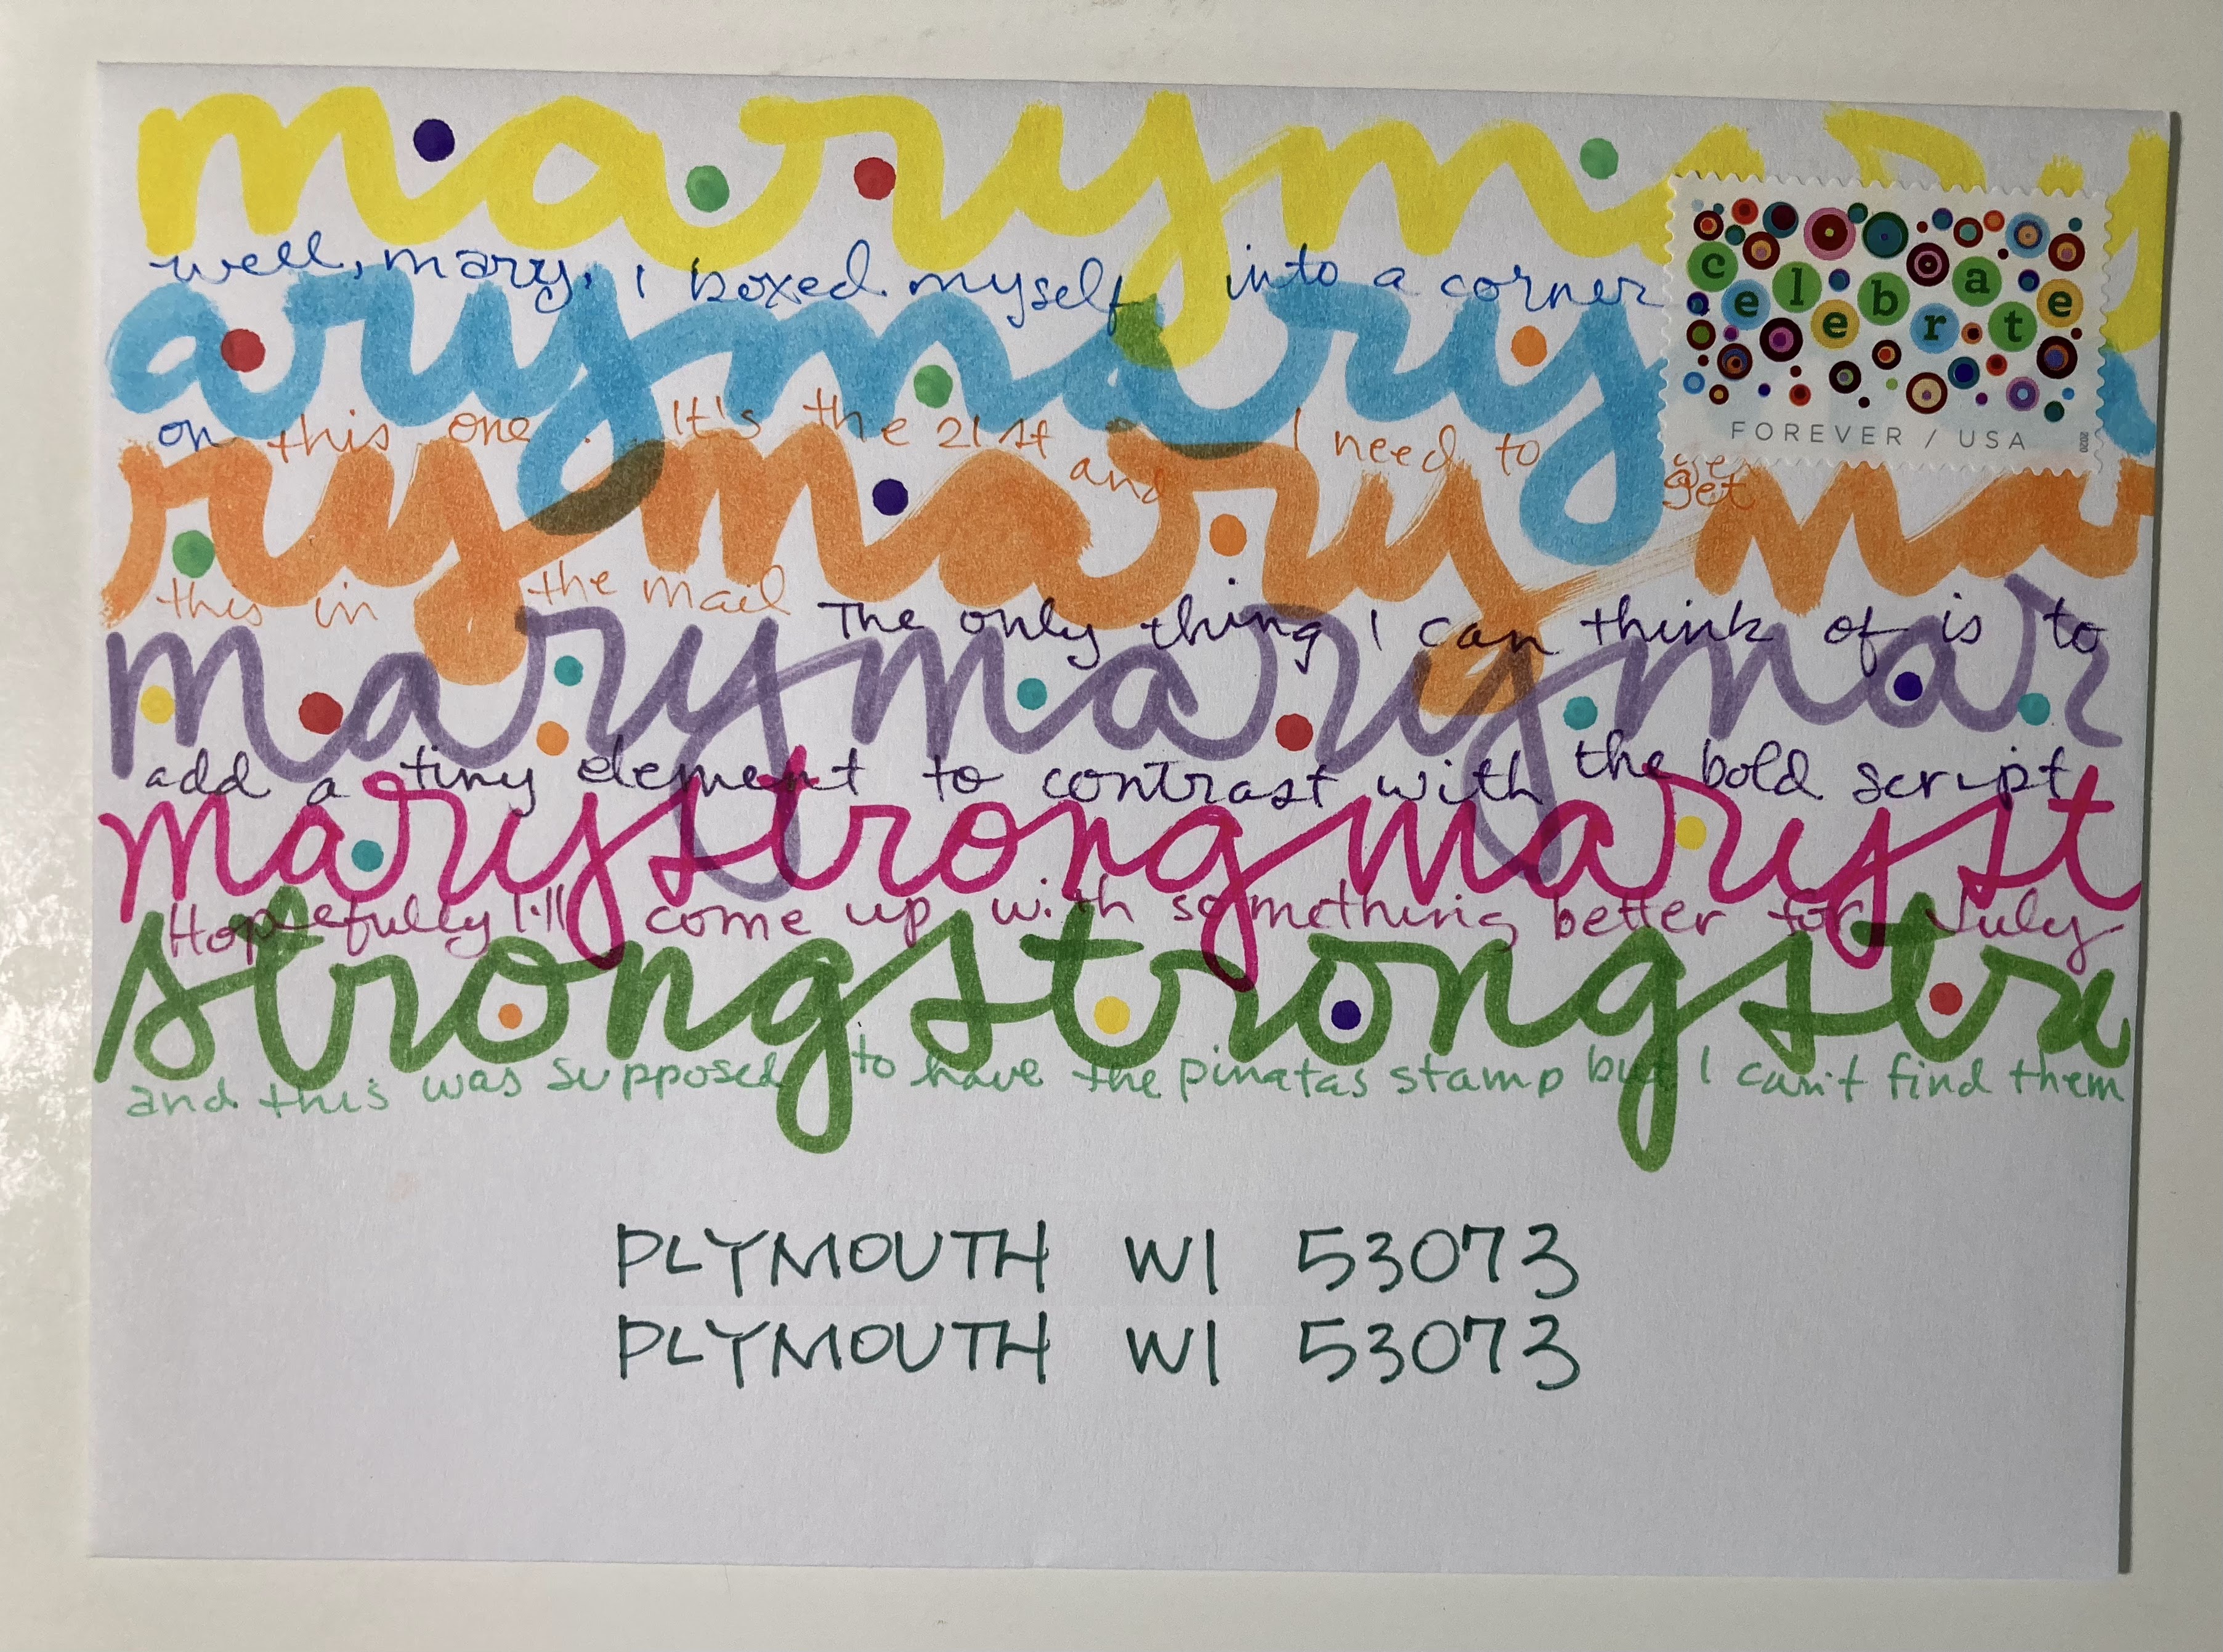 marymary
well, mary, I boxed myself into a corner
celebrate
arymary
FOREVER / USA
2020
on this one. It's the 21st and I need to get
rymaryma
this in the mail The only thing I can think of is to
marymarymar
add a tiny element to contrast with the bold script
marystrongmaryst
Hopefully I'll come up with something better for July
strongstrongstr
and this was supposed to have the pinatas stamp but I can't find them
PLYMOUTH WI 53073
PLYMOUTH WI 53073